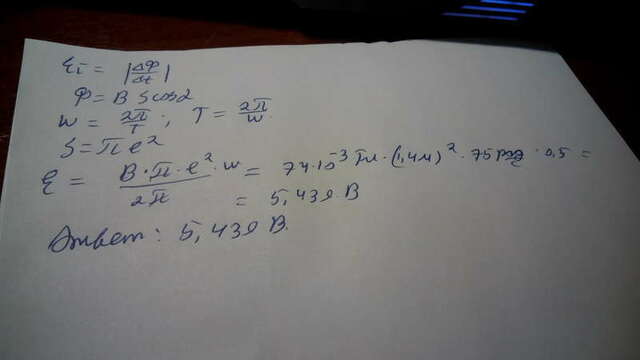 ℰi = |ΔФ/Δt|
Ф = B S cosα
w = 2π/T; T = 2π/w
S = πe²
ℰ = B·π·e²·w/2π = 74·10⁻³ Тл · (1,4м)² · 75 · 0,5 =
= 5,439 В
Ответ: 5,439 В.